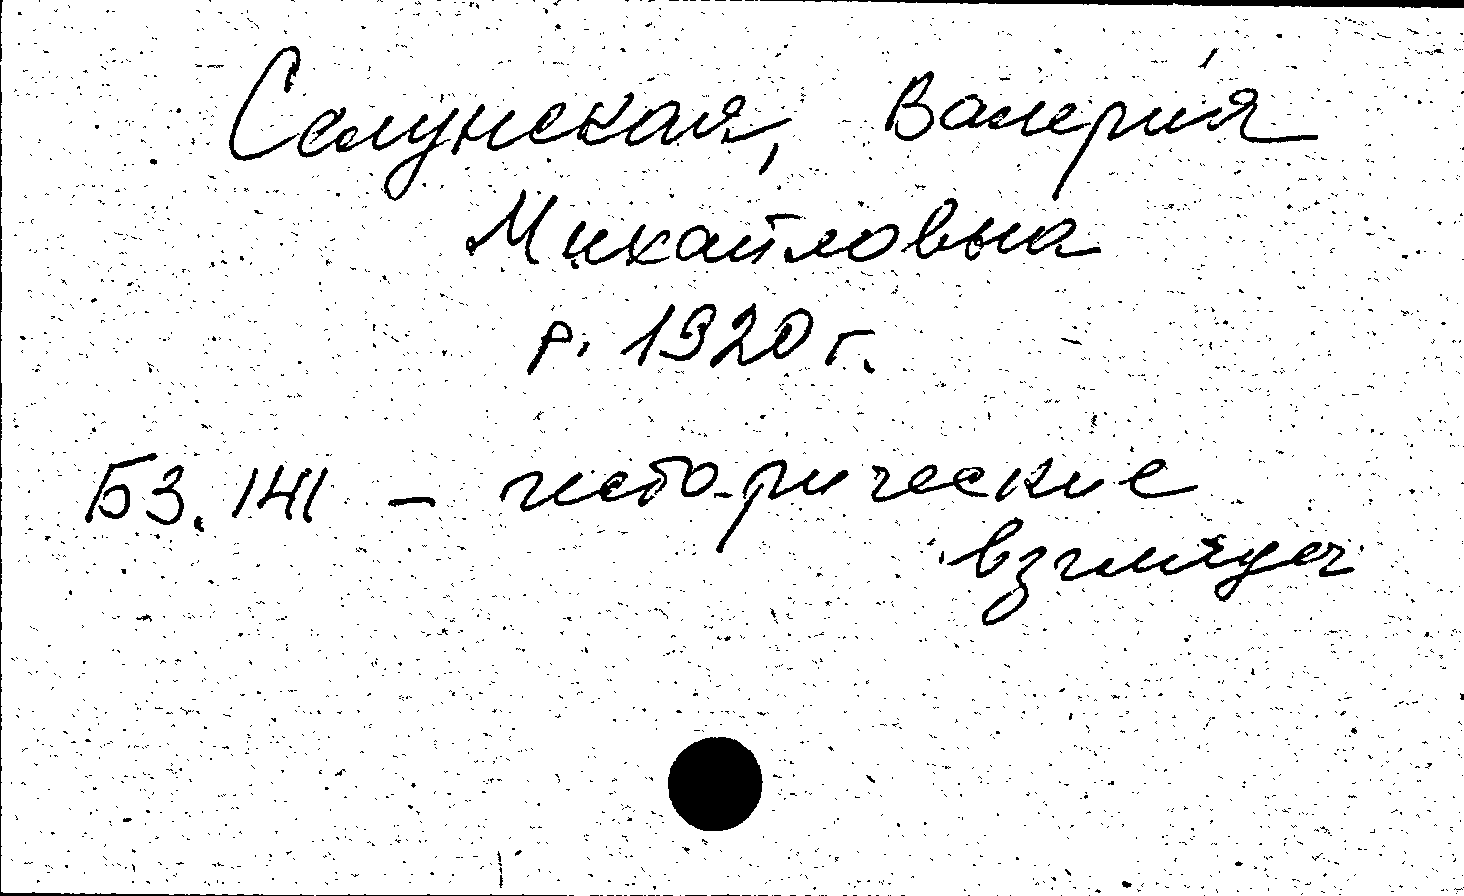 Селунская, Валерия
Михайловна
р. 1920 г.
Б3.141 – исторические
взгляды